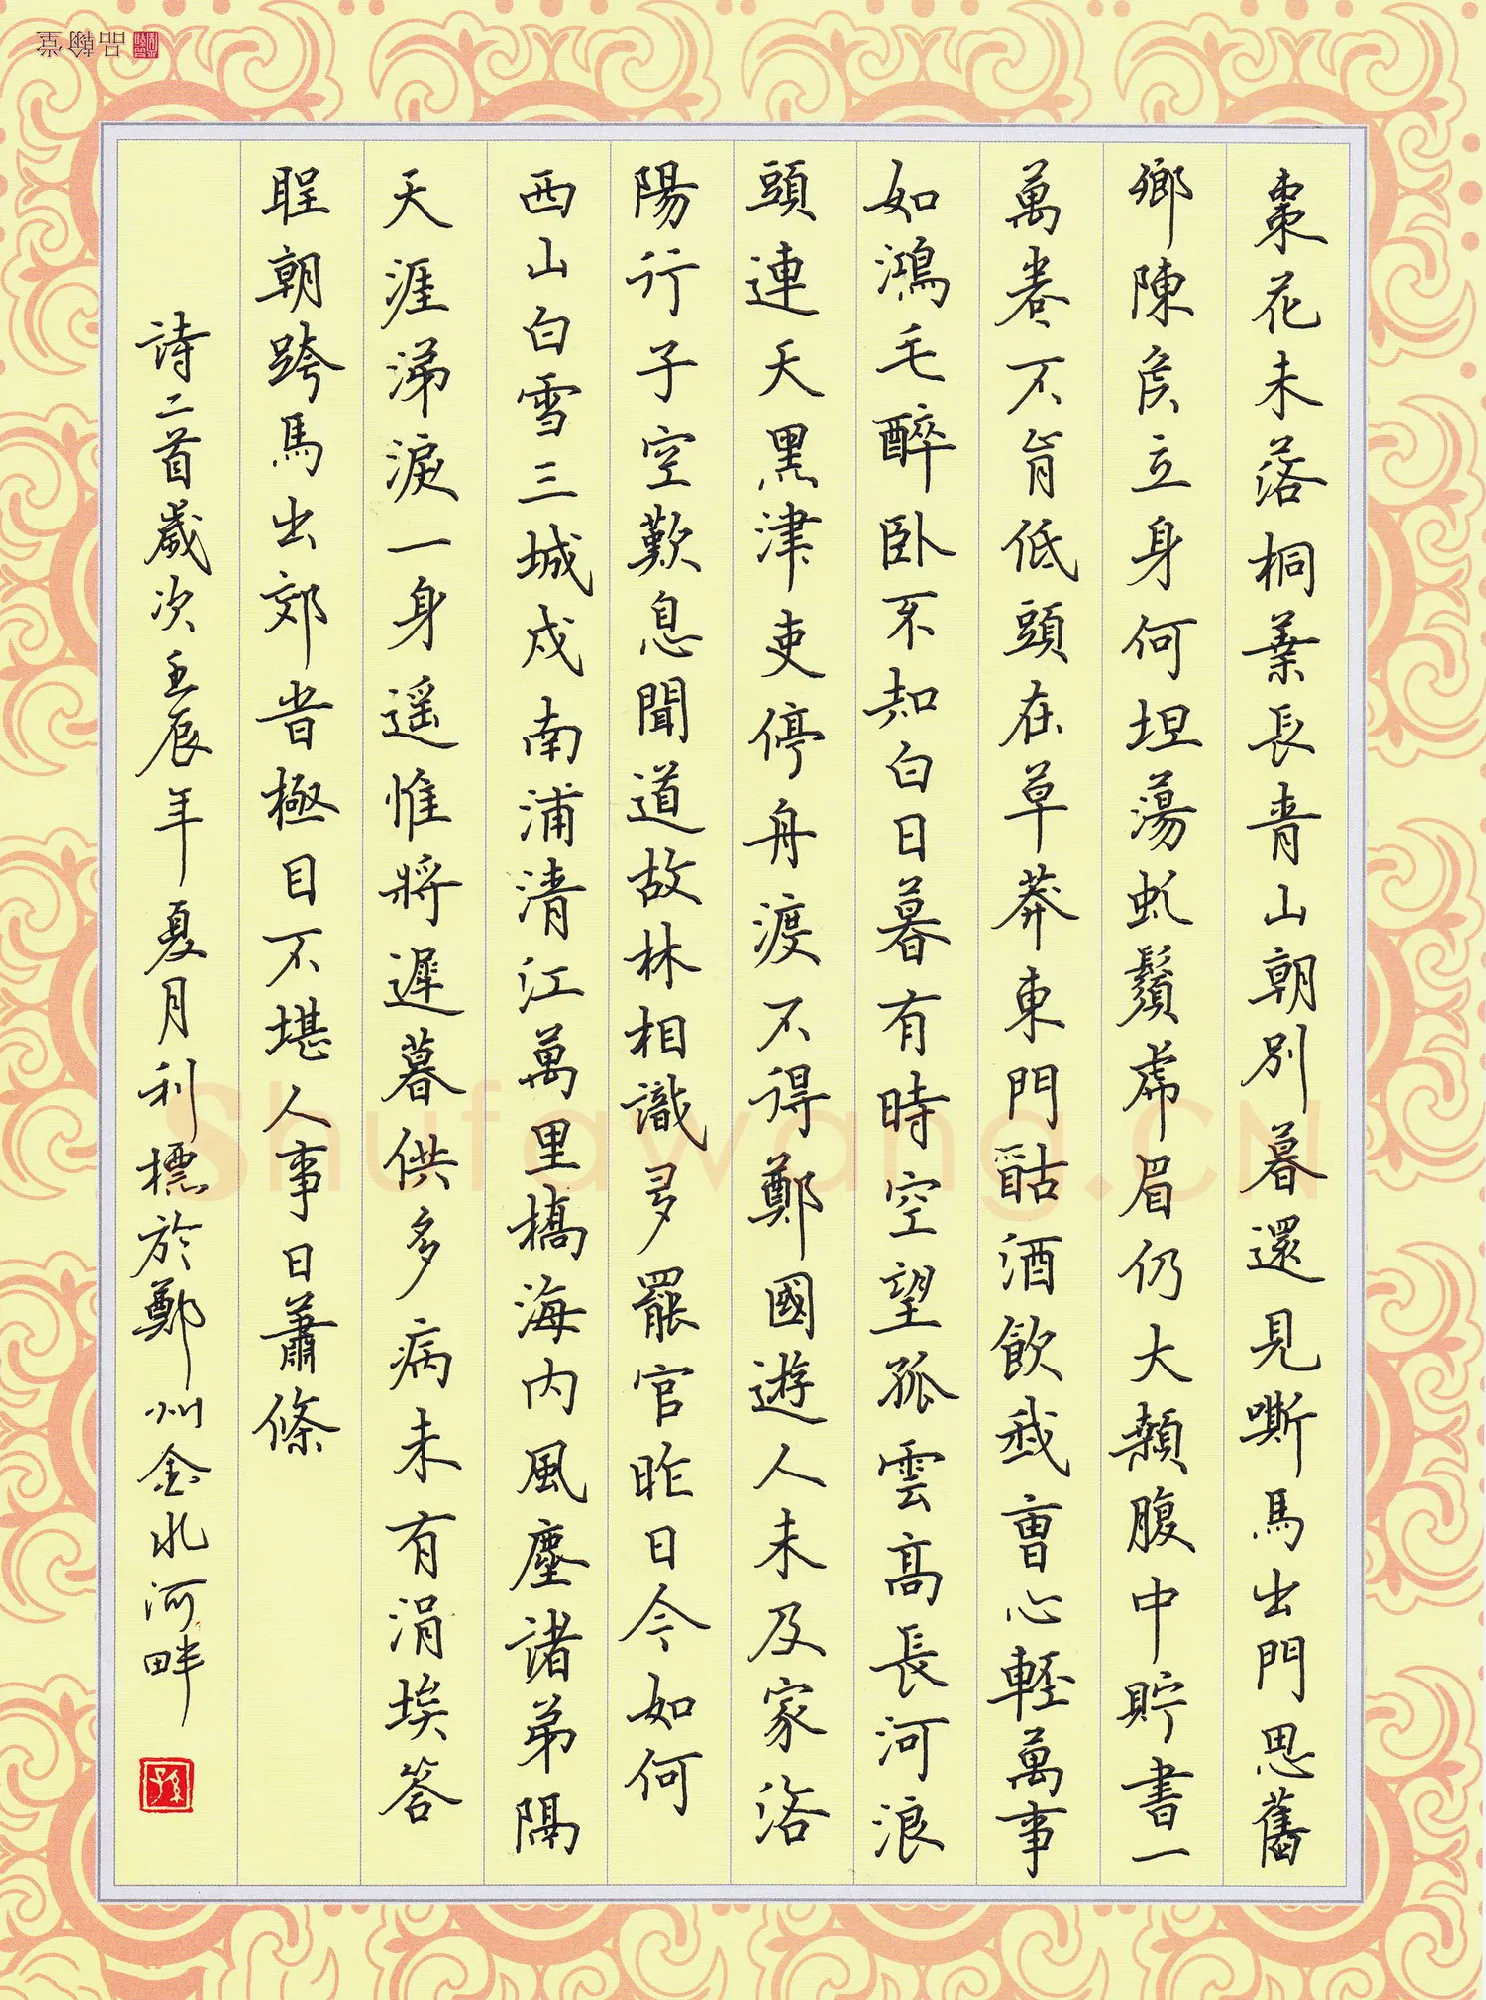 棗花未落桐葉長青山朝別暮還見嘶馬出門思舊
鄉陳侯立身何坦蕩虬鬚虎眉仍大顙腹中貯書一
萬卷不肯低頭在草莽東門酤酒飲我曹心輕萬事
如鴻毛醉卧不知白日暮有時空望孤雲高長河浪
頭連天黑津吏停舟渡不得鄭國遊人未及家洛
陽行子空歎息聞道故林相識多罷官昨日今如何
西山白雪三城戍南浦清江萬里橋海內風塵諸弟隔
天涯涕淚一身遥惟將遲暮供多病未有涓埃答
聖朝跨馬出郊時極目不堪人事日蕭條
詩二首歲次壬辰年夏月利標於鄭州金水河畔
品翰堂
Shufawang.CN